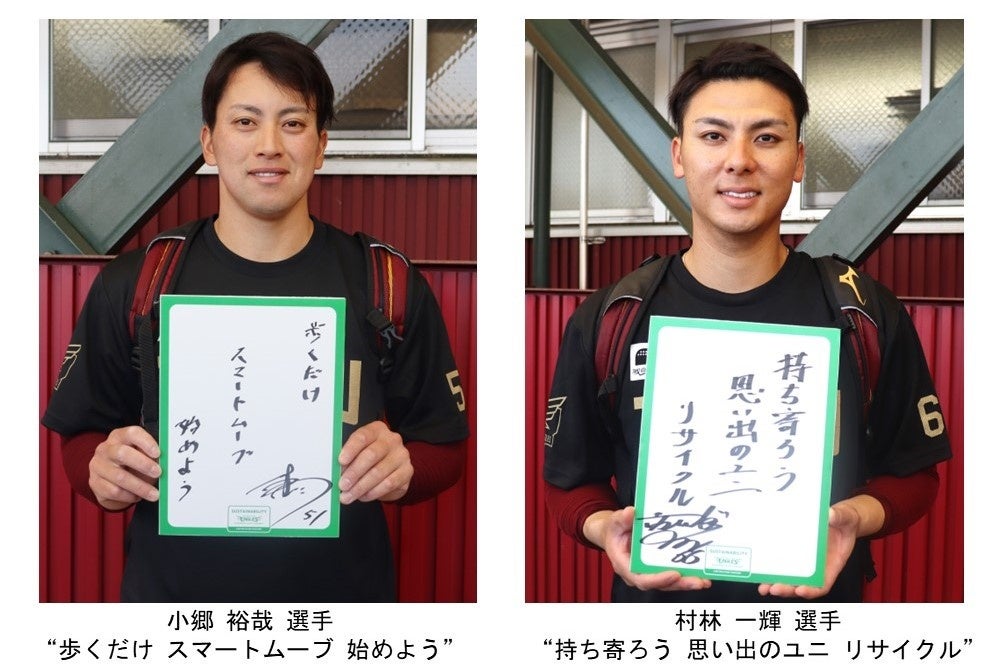 歩くだけ
スマートムーブ
始めよう
51
SUSTAINABILITY
EAGLES
5
持ち寄ろう
思い出のユニ
リサイクル
SUSTAINABILITY
EAGLES
6
小郷 裕哉 選手
“歩くだけ スマートムーブ 始めよう”
村林 一輝 選手
“持ち寄ろう 思い出のユニ リサイクル”